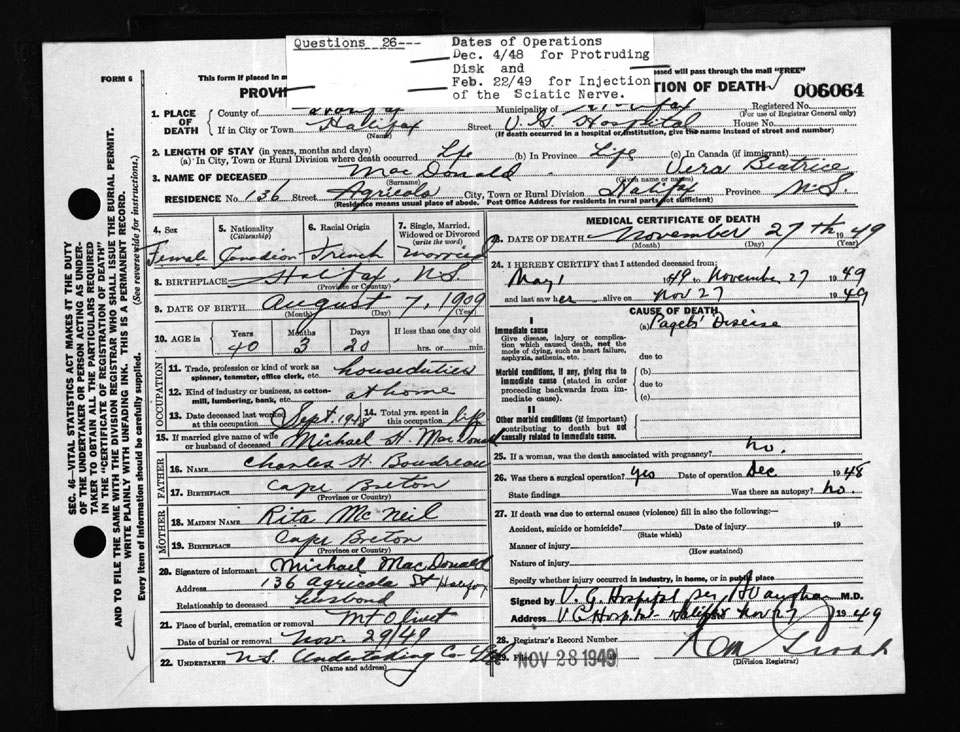 Questions 26---
Dates of Operations
Dec. 4/48 for Protruding
Disk and
Feb. 22/49 for Injection
of the Sciatic Nerve.
FORM 6
This form if placed in a
sed will pass through the mail "FREE"
PROVI
TION OF DEATH
006064
1. PLACE OF DEATH
County of Halifax
Municipality of Halifax
Registered No.
(For use of Registrar General only)
If in City or Town Halifax
(Name)
Street V. G. Hospital House No.
(If death occurred in a hospital or institution, give the name instead of street and number)
2. LENGTH OF STAY (in years, months and days)
(a) In City, Town or Rural Division where death occurred Life (b) In Province Life (c) In Canada (if immigrant)
3. NAME OF DECEASED MacDonald Vera Beatrice
(Surname) (Given name or names)
RESIDENCE No. 136 Street Agricola City, Town or Rural Division Halifax Province N.S.
(Residence means usual place of abode. Post Office Address for residents in rural parts not sufficient)
4. Sex
5. Nationality (Citizenship)
6. Racial Origin
7. Single, Married, Widowed or Divorced (write the word)
Female Canadian French Married
8. BIRTHPLACE Halifax, N.S.
(Province or Country)
9. DATE OF BIRTH August 7, 1909
(Month) (Day) (Year)
10. AGE in Years Months Days If less than one day old
40 3 20 hrs. or min.
OCCUPATION
11. Trade, profession or kind of work as spinner, teamster, office clerk, etc. houseduties
12. Kind of industry or business, as cotton-mill, lumbering, bank, etc. at home
13. Date deceased last worked at this occupation Sept. 1948
14. Total yrs. spent in this occupation life
15. If married give name of wife or husband of deceased Michael H. MacDonald
FATHER
16. NAME Charles H Boudreau
17. BIRTHPLACE Cape Breton
(Province or Country)
MOTHER
18. MAIDEN NAME Rita McNeil
19. BIRTHPLACE Cape Breton
(Province or Country)
20. Signature of informant Michael MacDonald
Address 136 Agricola St Halifax
Relationship to deceased husband
21. Place of burial, cremation or removal Mt Olivet
Date of burial or removal Nov. 29/49
22. UNDERTAKER N.S. Undertaking Co. Ltd
(Name and address)
MEDICAL CERTIFICATE OF DEATH
23. DATE OF DEATH November 27th 1949
(Month) (Day) (Year)
24. I HEREBY CERTIFY that I attended deceased from:
May 1 1949 to November 27 1949
and last saw her alive on Nov 27 1949
CAUSE OF DEATH
I
Immediate cause
Give disease, injury or complication which caused death, not the mode of dying, such as heart failure, asphyxia, asthenia, etc.
(a) Paget's Disease
due to
Morbid conditions, if any, giving rise to immediate cause (stated in order proceeding backwards from immediate cause).
(b)
due to
(c)
II
Other morbid conditions (if important) contributing to death but not causally related to immediate cause.
25. If a woman, was the death associated with pregnancy? no.
26. Was there a surgical operation? yes Date of operation Dec 1948
State findings Was there an autopsy? no.
27. If death was due to external causes (violence) fill in also the following:—
Accident, suicide or homicide? Date of injury 19
(State which)
Manner of injury
(How sustained)
Nature of injury
Specify whether injury occurred in industry, in home, or in public place
Signed by V. G. Hospital per M.D.
Address V G Hospital Halifax Nov 27 1949
28. Registrar's Record Number
29. Filed NOV 28 1949
(Division Registrar)
SEC. 46—VITAL STATISTICS ACT MAKES IT THE DUTY
OF THE UNDERTAKER OR PERSON ACTING AS UNDER-
TAKER TO OBTAIN ALL THE PARTICULARS REQUIRED
IN THE "CERTIFICATE OF REGISTRATION OF DEATH"
AND TO FILE THE SAME WITH THE DIVISION REGISTRAR WHO SHALL ISSUE THE BURIAL PERMIT.
WRITE PLAINLY WITH UNFADING INK. THIS IS A PERMANENT RECORD.
Every item of information should be carefully supplied. (See reverse side for instructions.)